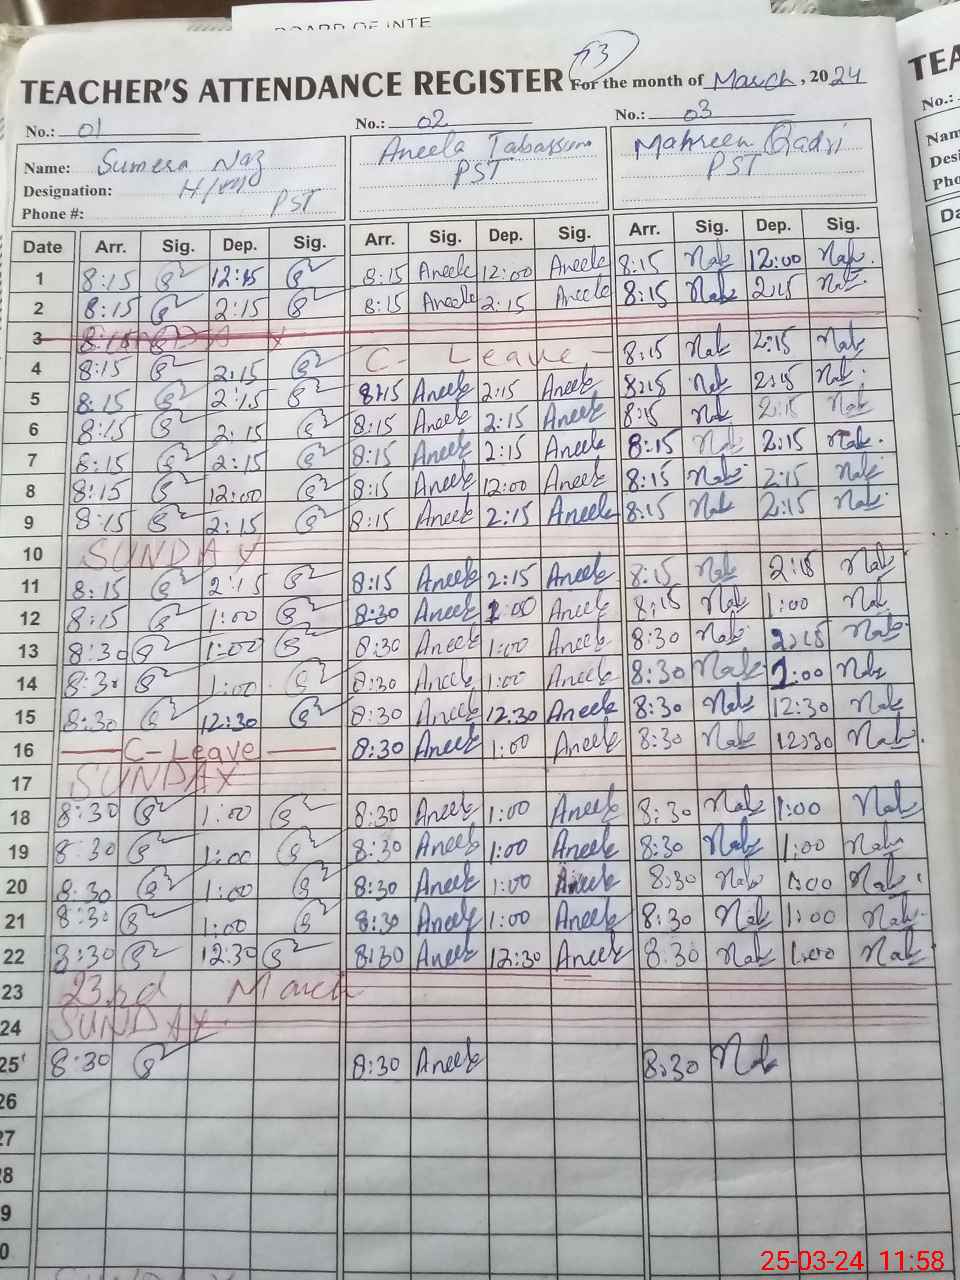 BOARD OF INTE
53
TEACHER'S ATTENDANCE REGISTER For the month of March, 2024
No.: 01 No.: 02 No.: 03
Name: Sumera Naz Aneela Tabassum Mahreen Qadri
Designation: H/M PST PST PST
Phone #:
Date Arr. Sig. Dep. Sig. Arr. Sig. Dep. Sig. Arr. Sig. Dep. Sig.
1 8:15 12:15 8:15 Aneela 12:00 Aneela 8:15 12:00
2 8:15 2:15 8:15 Aneela 2:15 Aneela 8:15 2:15
3
4 8:15 2:15 C- Leave - 8:15 2:15
5 8:15 2:15 8:15 Aneela 2:15 Aneela 8:15 2:15
6 8:15 2:15 8:15 Aneela 2:15 Aneela 8:15 2:15
7 8:15 2:15 8:15 Aneela 2:15 Aneela 8:15 2:15
8 8:15 12:00 8:15 Aneela 12:00 Aneela 8:15 2:15
9 8:15 2:15 8:15 Aneela 2:15 Aneela 8:15 2:15
10 SUNDAY
11 8:15 2:15 8:15 Aneela 2:15 Aneela 8:15 2:15
12 8:15 1:00 8:30 Aneela 1:00 Aneela 8:15 1:00
13 8:30 1:00 8:30 Aneela 1:00 Aneela 8:30 2:15
14 8:30 1:00 8:30 Aneela 1:00 Aneela 8:30 1:00
15 8:30 12:30 8:30 Aneela 12:30 Aneela 8:30 12:30
16 C-Leave 8:30 Aneela 1:00 Aneela 8:30 12:30
17 SUNDAY
18 8:30 1:00 8:30 Aneela 1:00 Aneela 8:30 1:00
19 8:30 1:00 8:30 Aneela 1:00 Aneela 8:30 1:00
20 8:30 1:00 8:30 Aneela 1:00 Aneela 8:30 1:00
21 8:30 1:00 8:30 Aneela 1:00 Aneela 8:30 1:00
22 8:30 12:30 8:30 Aneela 12:30 Aneela 8:30 1:00
23 23rd March
24 SUNDAY
25 8:30 8:30 Aneela 8:30
26
27
28
9
0
25-03-24 11:58